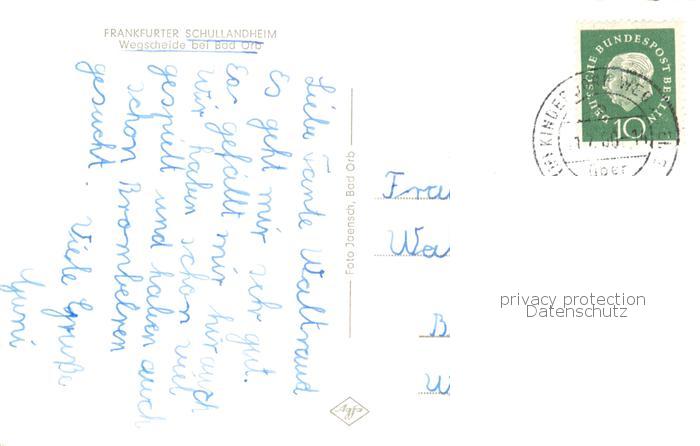 FRANKFURTER SCHULLANDHEIM
Wegscheide bei Bad Orb
Liebe Tante Waltraud
Es geht mir sehr gut.
Es gefällt mir hir auch
wir haben schon viel
gespielt und haben auch
schon Brombeeren
gesucht.
Viele Grüße
Foto Joensch, Bad Orb
Agfa
Fra
Wa
B
W
DEUTSCHE BUNDESPOST BERLIN
10
KINDER
über
privacy protection
Datenschutz